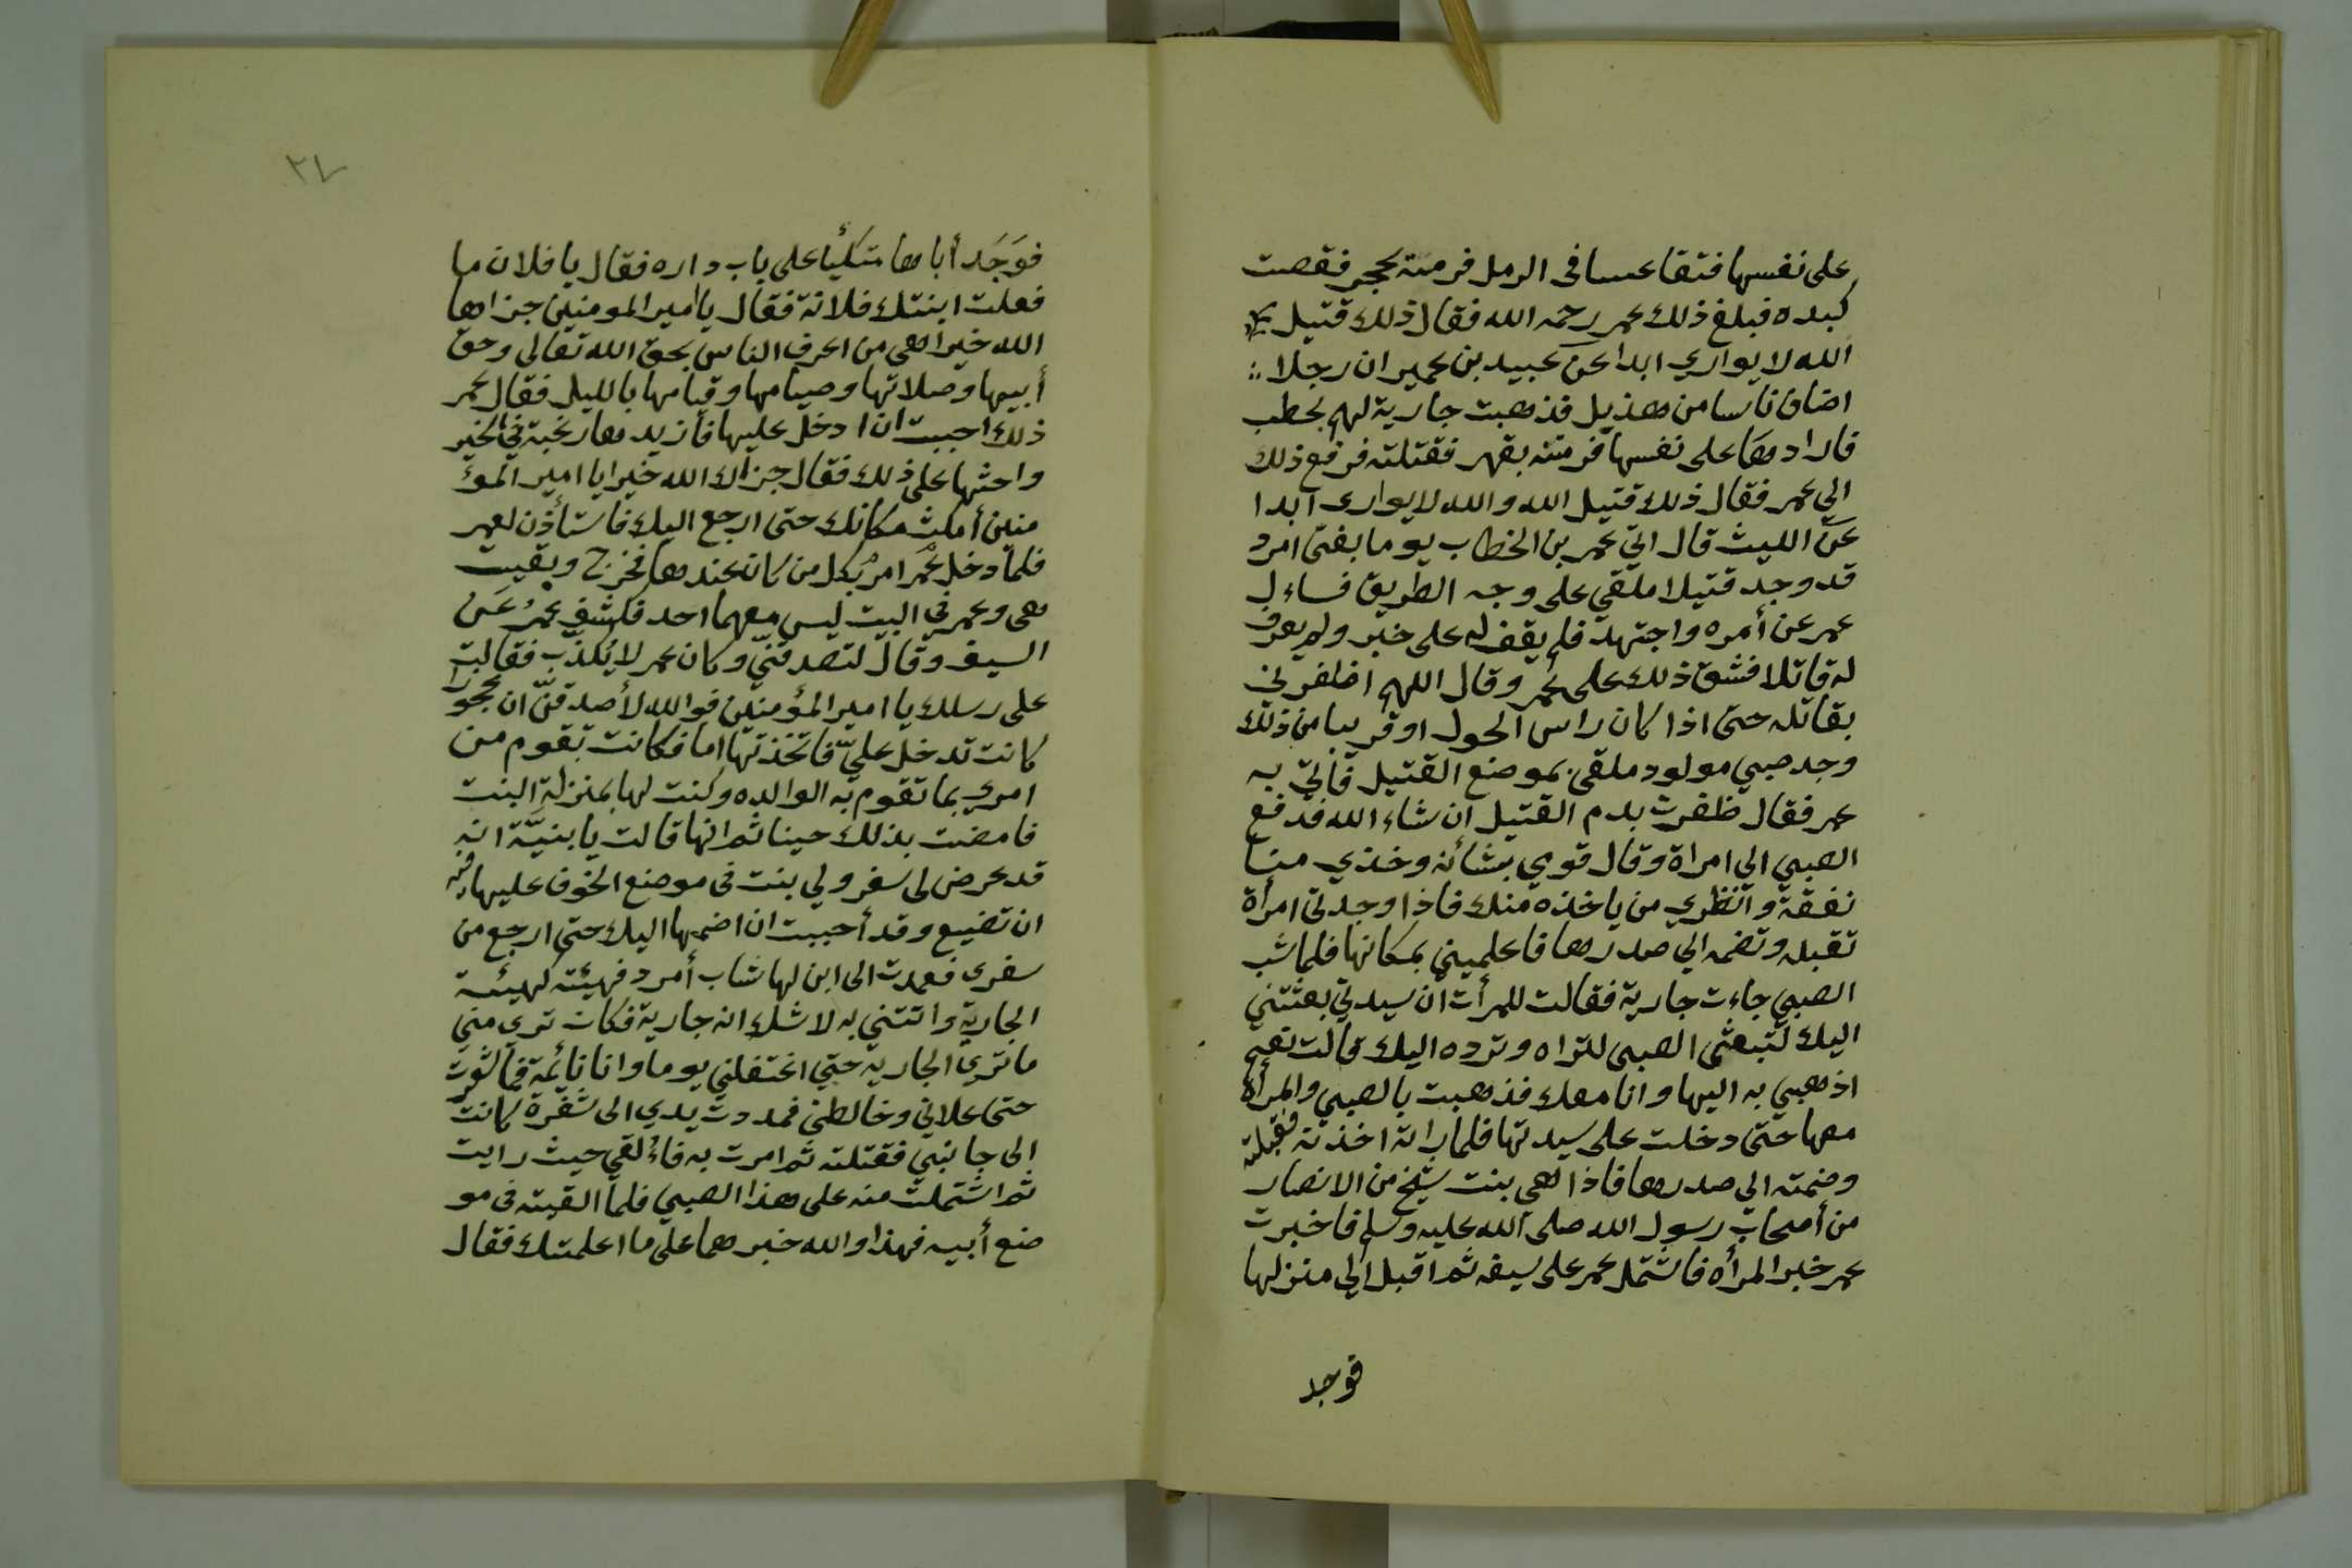 على نفسها فتقاعسا فى الرمل فرمته بحجر فقصت
كبده فبلغ ذلك عمر رحمه الله فقال ذلك قتيل
الله لا يوارى ابدا عن عبيد بن عمير ان رجلا :.
اضاف ناسا من هذيل فذهبت جارية لهم تحطب
فارادها على نفسها فرمته بفهر فقتلته فرفع ذلك
الى عمر فقال ذلك قتيل الله والله لا يوارى ابدا
عن الليث قال اتي عمر بن الخطاب يوما بفتى امرد
قد وجد قتيلا ملقى على وجه الطريق فساءل
عمر عن أمره واجتهد فلم يقف له على خبر ولم يعرف
له قاتلا فشق ذلك على عمر وقال اللهم اظفرني
بقاتله حتى اذا كان راس الحول او قريبا من ذلك
وجد صبي مولود ملقى بموضع القتيل فأتي به
عمر فقال ظفرت بدم القتيل ان شاء الله فدفع
الصبي الى امراة وقال قومي بشأنه وخذي منا
نفقة وانظري من ياخذه منك فاذا وجدتى امرأة
تقبله وتضمه الي صدرها فاعلميني بمكانها فلما شب
الصبي جاءت جارية فقالت للمرأت ان سيدتي بعثتني
اليك لتبعثى الصبى لتراه وترده اليك قالت نعم
اذهبي به اليها وانا معك فذهبت بالصبي والمرأة
معها حتى دخلت على سيدتها فلما راته اخذته فقبلته
وضمته الي صدرها فاذا هي بنت شيخ من الانصار
من أصحاب رسول الله صلى الله عليه وسلم فاخبرت
عمر خبر المرأه فاشتمل عمر على سيفه ثم اقبل الي منزلها
فوجد
٢٧
فوَجَد أباها متكئًا على باب داره فقال يا فلان ما
فعلت ابنتك فلانة فقال يا امير المومنين جزاها
الله خيرا هى من اعرف الناس بحق الله تعالى وحق
أبيها وصلاتها وصيامها وقيامها بالليل فقال عمر
ذلك احببت ان ادخل عليها فأزيدها رغبة في الخير
واحثها على ذلك فقال جزاك الله خيرا يا امير المؤ
منين أمكث مكانك حتى ارجع اليك فاستأذن لعمر
فلما دخل عمر امر بكل من كان عندها فخرج وبقيت
هى وعمر في البيت ليس معهما احد فكشف عمرُ عَن
السيف وقال لتصدقنّي وكان عمر لا يُكذب فقالت
على رسلك يا امير المؤمنين فوالله لأصدقنّ ان عجوزا
كانت تدخل عليّ فاتخذتها اما فكانت تقوم من
امري بما تقوم به الوالده وكنت لها بمنزلة البنت
فامضت بذلك حينا ثم انها قالت يا بنيّة انه
قد عرض لى سفر ولي بنت فى موضع اتخوف عليها فيه
ان تضيع وقد أحببت ان اضمها اليك حتى ارجع من
سفرى فعمدت الى ابن لها شاب أمرد فهيئته كهيئة
الجارية واتتني به لا شك انه جارية فكان ترى مني
ما ترى الجارية حتي اغتفلني يوما وانا نائمة فما شعرت
حتى علاني وخالطنى فمددت يدي الى شفرة كانت
الى جانبي فقتلته ثم امرت به فاءُلقي حيث رايت
ثم اشتملت منه على هذا الصبي فلما القيته فى مو
ضع أبيه فهذا والله خبرهما على ما اعلمتك فقال